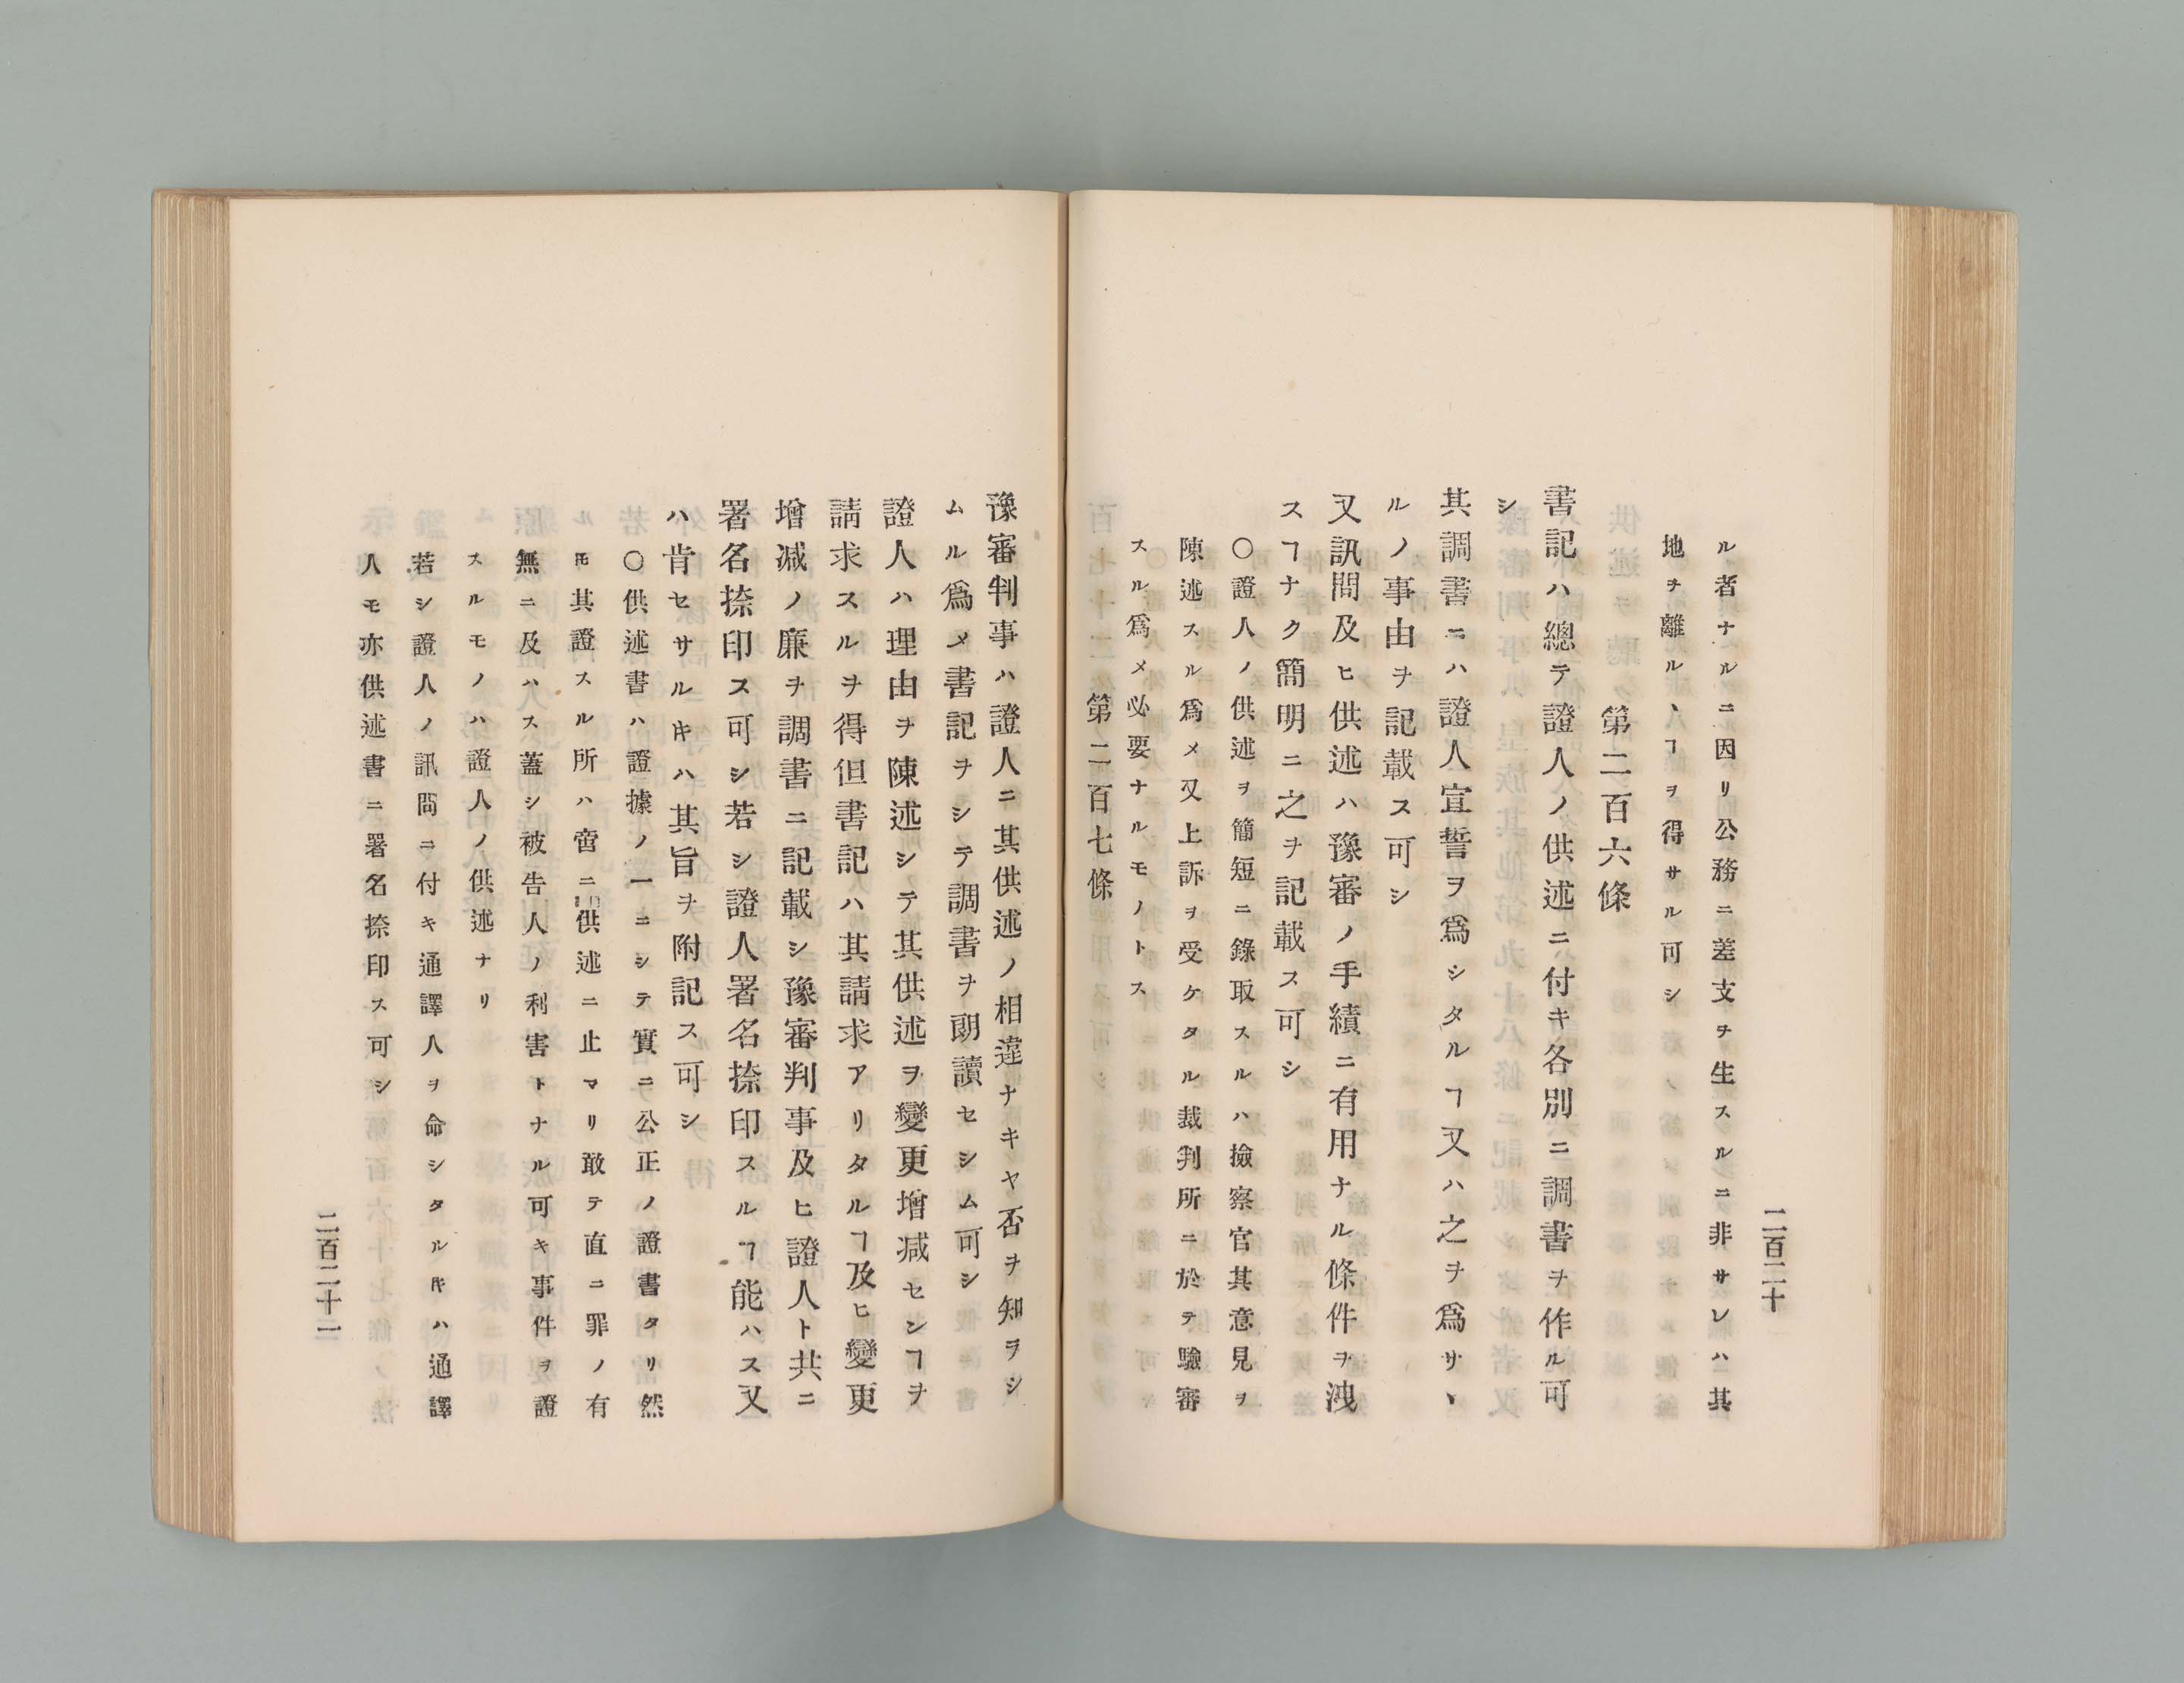 二百二十
ル者ナルニ因リ公務ニ差支ヲ生スルニ非サレハ其
地ヲ離ルヽヿヲ得サル可シ
第二百六條
書記ハ總テ證人ノ供述ニ付キ各別ニ調書ヲ作ル可
シ
其調書ニハ證人宣誓ヲ爲シタルヿ又ハ之ヲ爲サヽ
ルノ事由ヲ記載ス可シ
又訊問及ヒ供述ハ豫審ノ手續ニ有用ナル條件ヲ洩
スヿナク簡明ニ之ヲ記載ス可シ
〇證人ノ供述ヲ簡短ニ錄取スルハ撿察官其意見ヲ
陳述スル爲メ又上訴ヲ受ケタル裁判所ニ於テ驗審
スル爲メ必要ナルモノトス
第二百七條
豫審判事ハ證人ニ其供述ノ相違ナキヤ否ヲ知ラシ
ムル爲メ書記ヲシテ調書ヲ朗讀セシム可シ
證人ハ理由ヲ陳述シテ其供述ヲ變更增减センヿヲ
請求スルヲ得但書記ハ其請求アリタルヿ及ヒ變更
增减ノ廉ヲ調書ニ記載シ豫審判事及ヒ證人ト共ニ
署名捺印ス可シ若シ證人署名捺印スルヿ能ハス又
ハ肯セサルキハ其旨ヲ附記ス可シ
〇供述書ハ證據ノ一ニシテ實ニ公正ノ證書タリ然
𪜈其證スル所ハ啻ニ供述ニ止マリ敢テ直ニ罪ノ有
無ニ及ハス蓋シ被告人ノ利害トナル可キ事件ヲ證
スルモノハ證人ノ供述ナリ
若シ證人ノ訊問ニ付キ通譯人ヲ命シタルキハ通譯
人モ亦供述書ニ署名捺印ス可シ
二百二十一